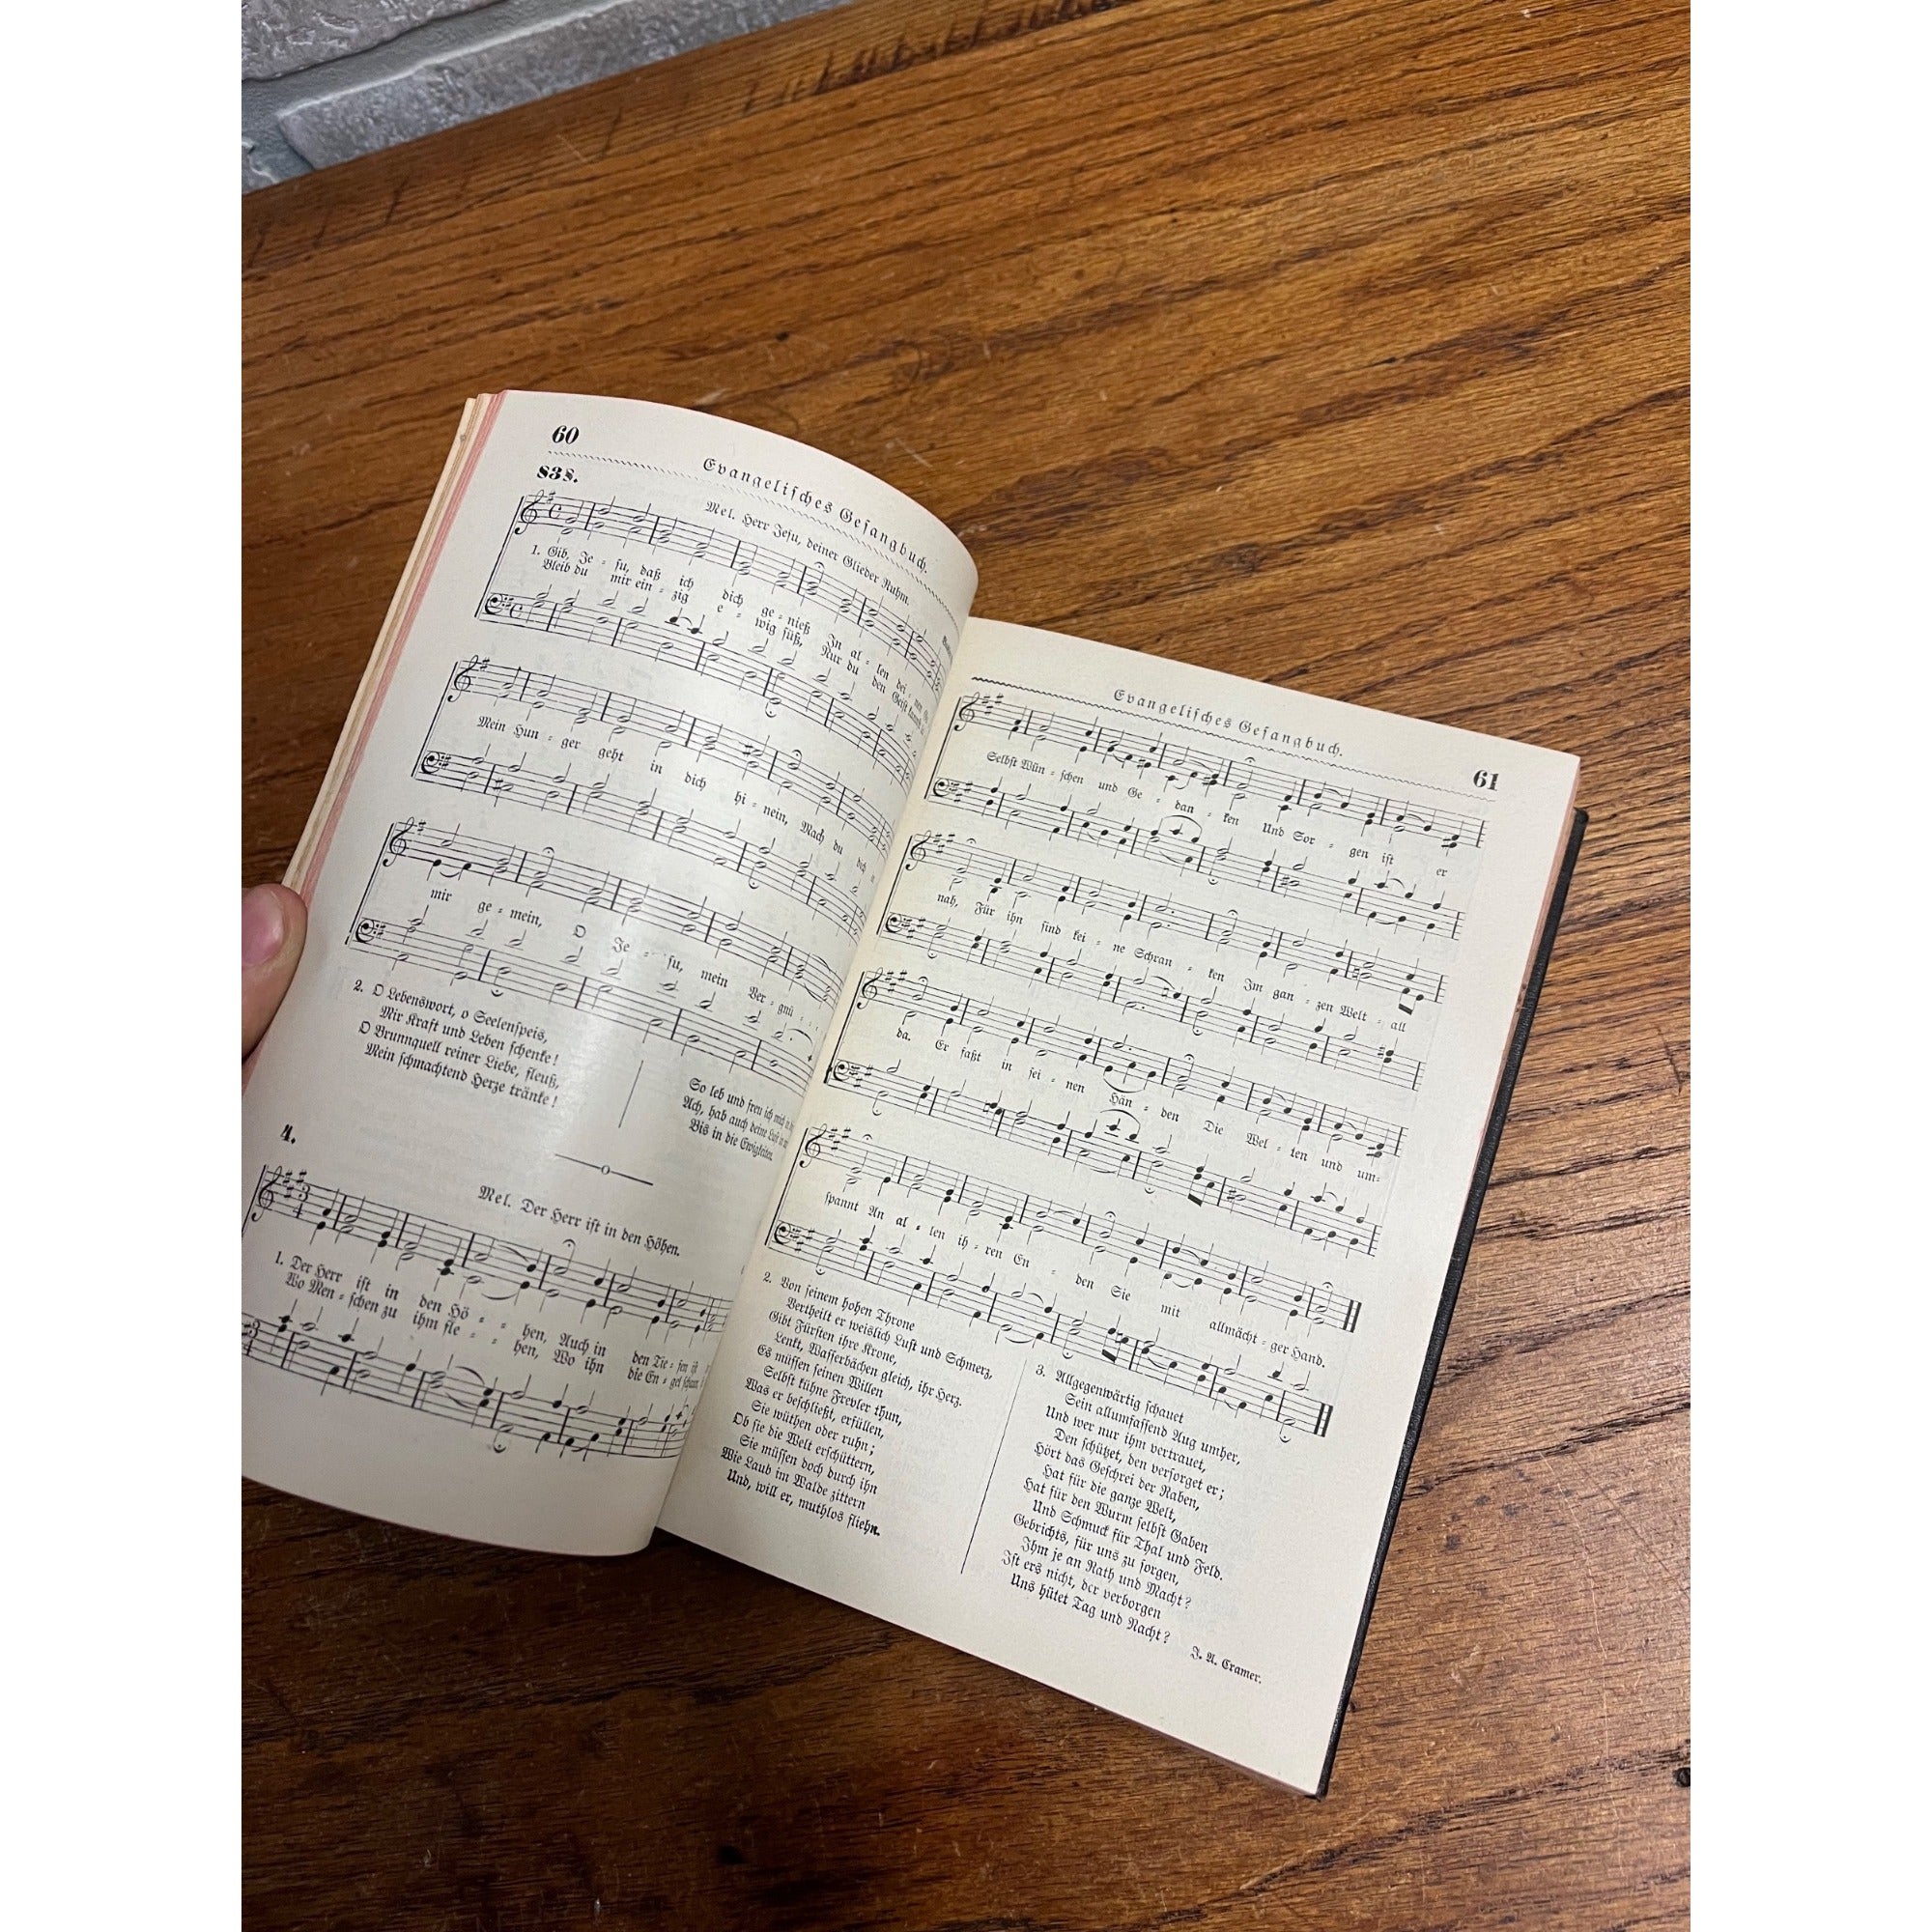 60
Evangelisches Gesangbuch.
83 8.
Mel. Herr Jesu, deiner Glieder Ruhm.
1. Gib, Je = su, daß ich dich ge = nieß In al = len dei = nen
Bleib du mir ein = zig e = wig süß, Nur du den Geist kannst
Mein Hun = ger geht in dich hi = nein, Mach du dich
mir ge = mein, O Je = su, mein Ver = gnü
2. O Lebenswort, o Seelenspeis,
Mir Kraft und Leben schenke!
O Brunnquell reiner Liebe, fleuß,
Mein schmachtend Herze tränke!
So leb und freu ich mich in
Ach, hab auch deine Lust in
Bis in die Ewigkeiten.
4.
Mel. Der Herr ist in den Höhen.
1. Der Herr ist in den Hö = = hen, Auch in den Tie = fen ist
Wo Men = schen zu ihm fle = = hen, Wo ihn die En = gel schaun
Evangelisches Gesangbuch.
61
Selbst Wün = schen und Ge = dan = ken Und Sor = gen ist er
nah, Für ihn sind kei = ne Schran = ken Im gan = zen Welt = all
da. Er faßt in sei = nen Hän = den Die Wel = ten und um=
spannt An al = len ih = ren En = den Sie mit allmächt = ger Hand.
2. Von seinem hohen Throne
Vertheilt er weislich Lust und Schmerz,
Gibt Fürsten ihre Krone,
Lenkt, Wasserbächen gleich, ihr Herz.
Es müssen seinen Willen
Selbst kühne Frevler thun,
Was er beschließt, erfüllen,
Sie wüthen oder ruhn;
Ob sie die Welt erschüttern,
Sie müssen doch durch ihn
Wie Laub im Walde zittern
Und, will er, muthlos fliehn.
3. Allgegenwärtig schauet
Sein allumfassend Aug umher,
Und wer nur ihm vertrauet,
Den schützet, den versorget er;
Hört das Geschrei der Raben,
Hat für die ganze Welt,
Hat für den Wurm selbst Gaben
Und Schmuck für Thal und Feld.
Gebrichts, für uns zu sorgen,
Ihm je an Rath und Macht?
Ist ers nicht, der verborgen
Uns hütet Tag und Nacht?
J. A. Cramer.